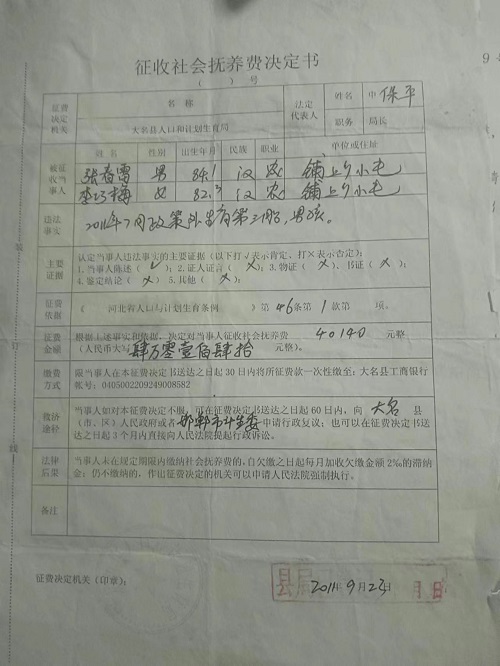 征收社会抚养费决定书
( ) 号
征费决定机关 名称 法定代表人 姓名 保平
大名县人口和计划生育局 职务 局长
被征收当事人 姓名 性别 出生年月 民族 职业 单位或住址
张春雷 男 84.1 汉 农 铺上乡小屯
李巧梅 女 82. 汉 农 铺上乡小屯
违法事实 2011年7月政策外生育第 胎,男孩。
主要证据 认定当事人违法事实的主要证据(以下打√表示肯定、打×表示否定):
1.当事人陈述(√);2.证人证言(×);3.物证(×)、书证(×);
4.鉴定结论(×);5.其他(×);
征费依据 《 河北省人口与计划生育条例 》第46条第1款第 项。
征费金额 根据上述事实和依据,决定对当事人征收社会抚养费 40140 元整
(人民币大写 肆万零壹佰肆拾 元整)。
缴费方式 限当事人在本征费决定书送达之日起30日内将所征费款一次性缴至:大名县工商银行
帐号:0405002209249008582
救济途径 当事人如对本征费决定不服,可在征费决定书送达之日起60日内,向 大名 县
(市、区)人民政府或者 邯郸市计生委 申请行政复议;也可以在征费决定书送
达之日起3个月内直接向人民法院提起行政诉讼。
法律后果 当事人未在规定期限内缴纳社会抚养费的,自欠缴之日起每月加收欠缴金额2‰的滞纳
金;仍不缴纳的,作出征费决定的机关可以申请人民法院强制执行。
备注
征费决定机关(印章): 2011年9月23日
装
订
线